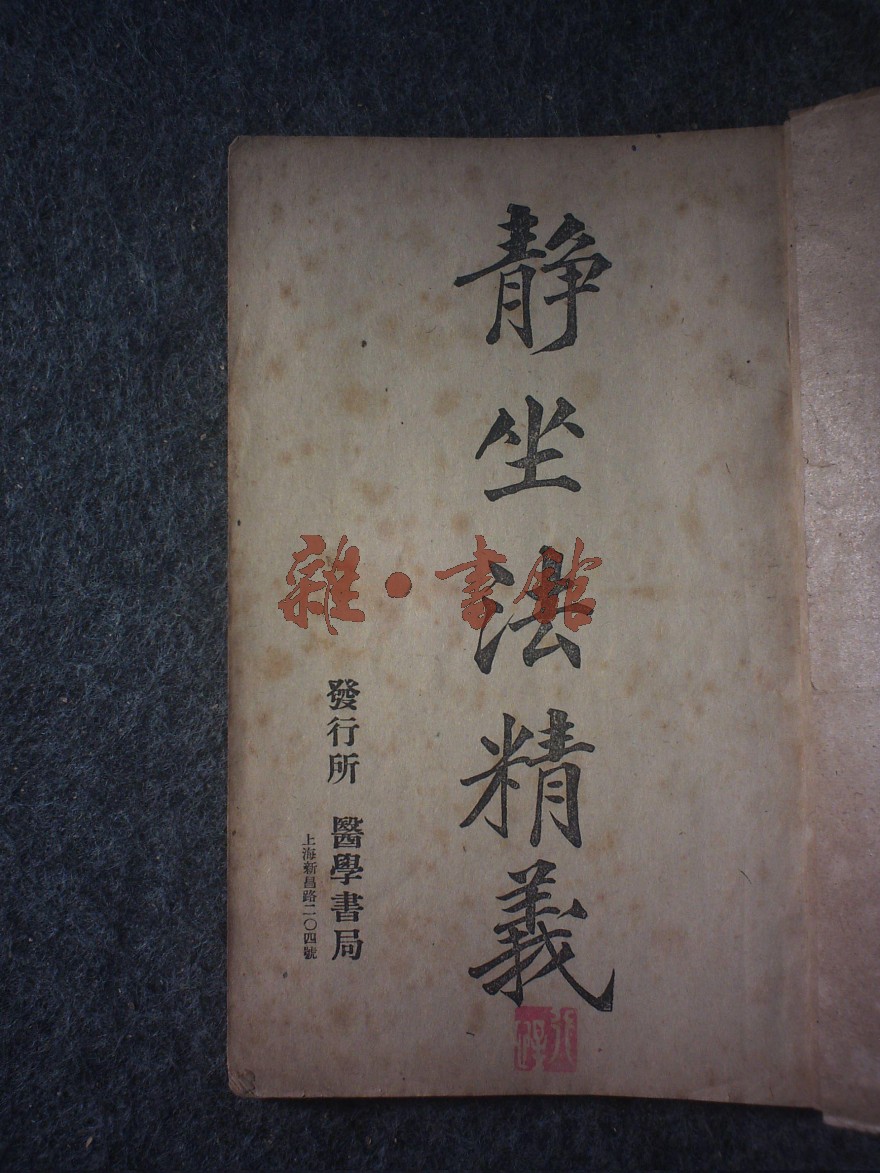 靜坐法精義
發行所 醫學書局
上海新昌路二〇四號
雜·書館